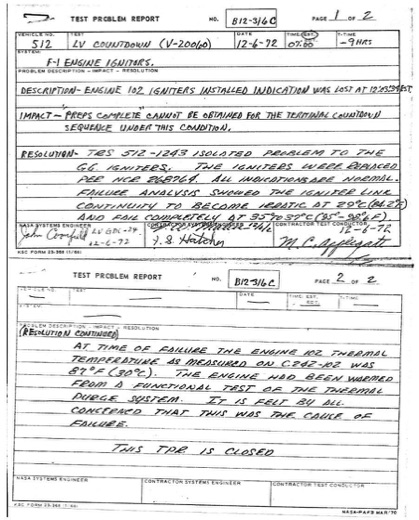 TEST PROBLEM REPORT NO. B12-316C PAGE 1 OF 2
VEHICLE NO. TEST DATE TIME: EST T-TIME
512 LV COUNTDOWN (V-20060) 12-6-72 07:00 -9HRS
SYSTEM:
F-1 ENGINE IGNITORS.
PROBLEM DESCRIPTION - IMPACT - RESOLUTION
DESCRIPTION- ENGINE 102 IGNITERS INSTALLED INDICATION WAS LOST AT EST
IMPACT- "PREPS COMPLETE" CANNOT BE OBTAINED FOR THE TERMINAL COUNTDOWN
SEQUENCE UNDER THIS CONDITION.
RESOLUTION- TRS 512-1243 ISOLATED PROBLEM TO THE
GG IGNITERS. THE IGNITERS WERE REPLACED
PER NCR 268764. ALL INDICATIONS ARE NORMAL.
FAILURE ANALYSIS SHOWED THE IGNITER LINK
CONTINUITY TO BECOME ERRATIC AT 29°C (84.2°F)
AND FAIL COMPLETELY AT 35° TO 37°C
NASA SYSTEMS ENGINEER CONTRACTOR SYSTEMS ENGINEER CONTRACTOR TEST CONDUCTOR
John 12-6-72
12-6-72 J. S. Hatcher M. C. Applegate
KSC FORM
TEST PROBLEM REPORT B12-316C PAGE 2 OF 2
VEHICLE NO. TEST DATE TIME: EST T-TIME
SYSTEM
PROBLEM DESCRIPTION - IMPACT - RESOLUTION
(RESOLUTION CONTINUED)
AT TIME OF FAILURE THE ENGINE 102 THERMAL
TEMPERATURE AS MEASURED ON C242-102 WAS
87°F (30°C). THE ENGINE HAD BEEN WARMED
FROM A FUNCTIONAL TEST OF THE THERMAL
PURGE SYSTEM. IT IS FELT BY ALL
CONCERNED THAT THIS WAS THE CAUSE OF
FAILURE.
THIS TPR IS CLOSED
NASA SYSTEMS ENGINEER CONTRACTOR SYSTEMS ENGINEER CONTRACTOR TEST CONDUCTOR
KSC FORM
NASA-PAFB MAR/70